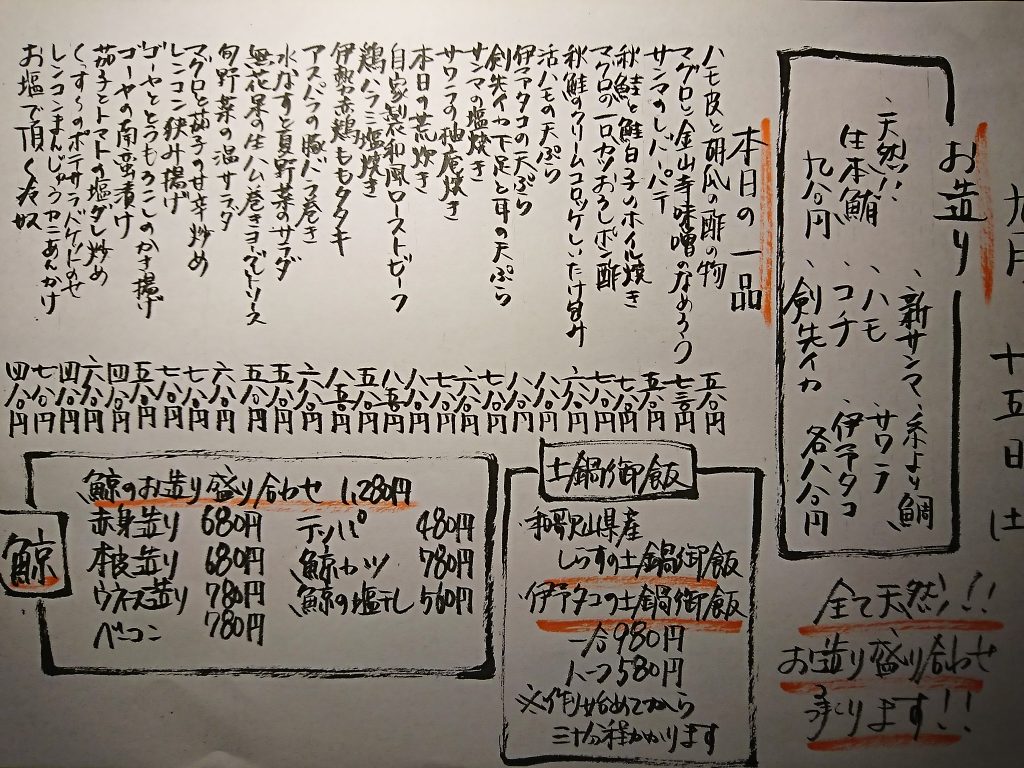 九月 十五日 土
お造り
、天然!!
生本鮪
九八〇円
、新サンマ、糸より鯛
、ハモ 、サワラ
、コチ 、伊予タコ
、剣先イカ 各八八〇円
全て天然!!
お造り盛り合わせ
承ります!!
本日の一品
ハモ皮と胡瓜の酢の物 五八〇円
マグロと金山寺味噌のなめろう 七三〇円
サンマのしパパテ 五八〇円
秋鮭と鮭白子のホイル焼き 七八〇円
マグロの一口カツおろしポン酢 七八〇円
秋鮭のクリームコロッケしいたけ包み 六八〇円
活ハモの天ぷら 八八〇円
伊予タコの天ぷら 八八〇円
剣先イカ下足と耳の天ぷら 七八〇円
サンマの塩焼き 六八〇円
サワラの柚庵焼き 七八〇円
本日の荒炊き 八八〇円
自家製和風ローストビーフ 八五〇円
鶏ハラミ塩焼き 五八〇円
伊勢赤鶏ももタタキ 八五〇円
アスパラの豚バラ巻き 六八〇円
水なすと夏野菜のサラダ 五八〇円
無花果の生ハム巻きヨーグルトソース 五八〇円
旬野菜の温サラダ 六八〇円
マグロと茄子の甘辛炒め 七八〇円
レンコン挟み揚げ 七八〇円
ゴーヤととうもろこしのかき揚げ 五八〇円
ゴーヤの南蛮漬け 四八〇円
茄子とトマトの塩ダレ炒め 六八〇円
くずし〜のポテサラバゲットのせ 四八〇円
レンコンまんじゅうカニあんかけ 七八〇円
お塩で頂く冷奴 四八〇円
土鍋御飯
、和歌山県産
しらすの土鍋御飯
、伊予タコの土鍋御飯
一合980円
ハーフ580円
※作り始めてから
三十分程かかります
鯨
鯨のお造り盛り合わせ 1,280円
赤身造り 680円
本皮造り 680円
ウネス造り 780円
ベーコン 780円
テッパ 480円
鯨カツ 780円
鯨の塩干し 560円